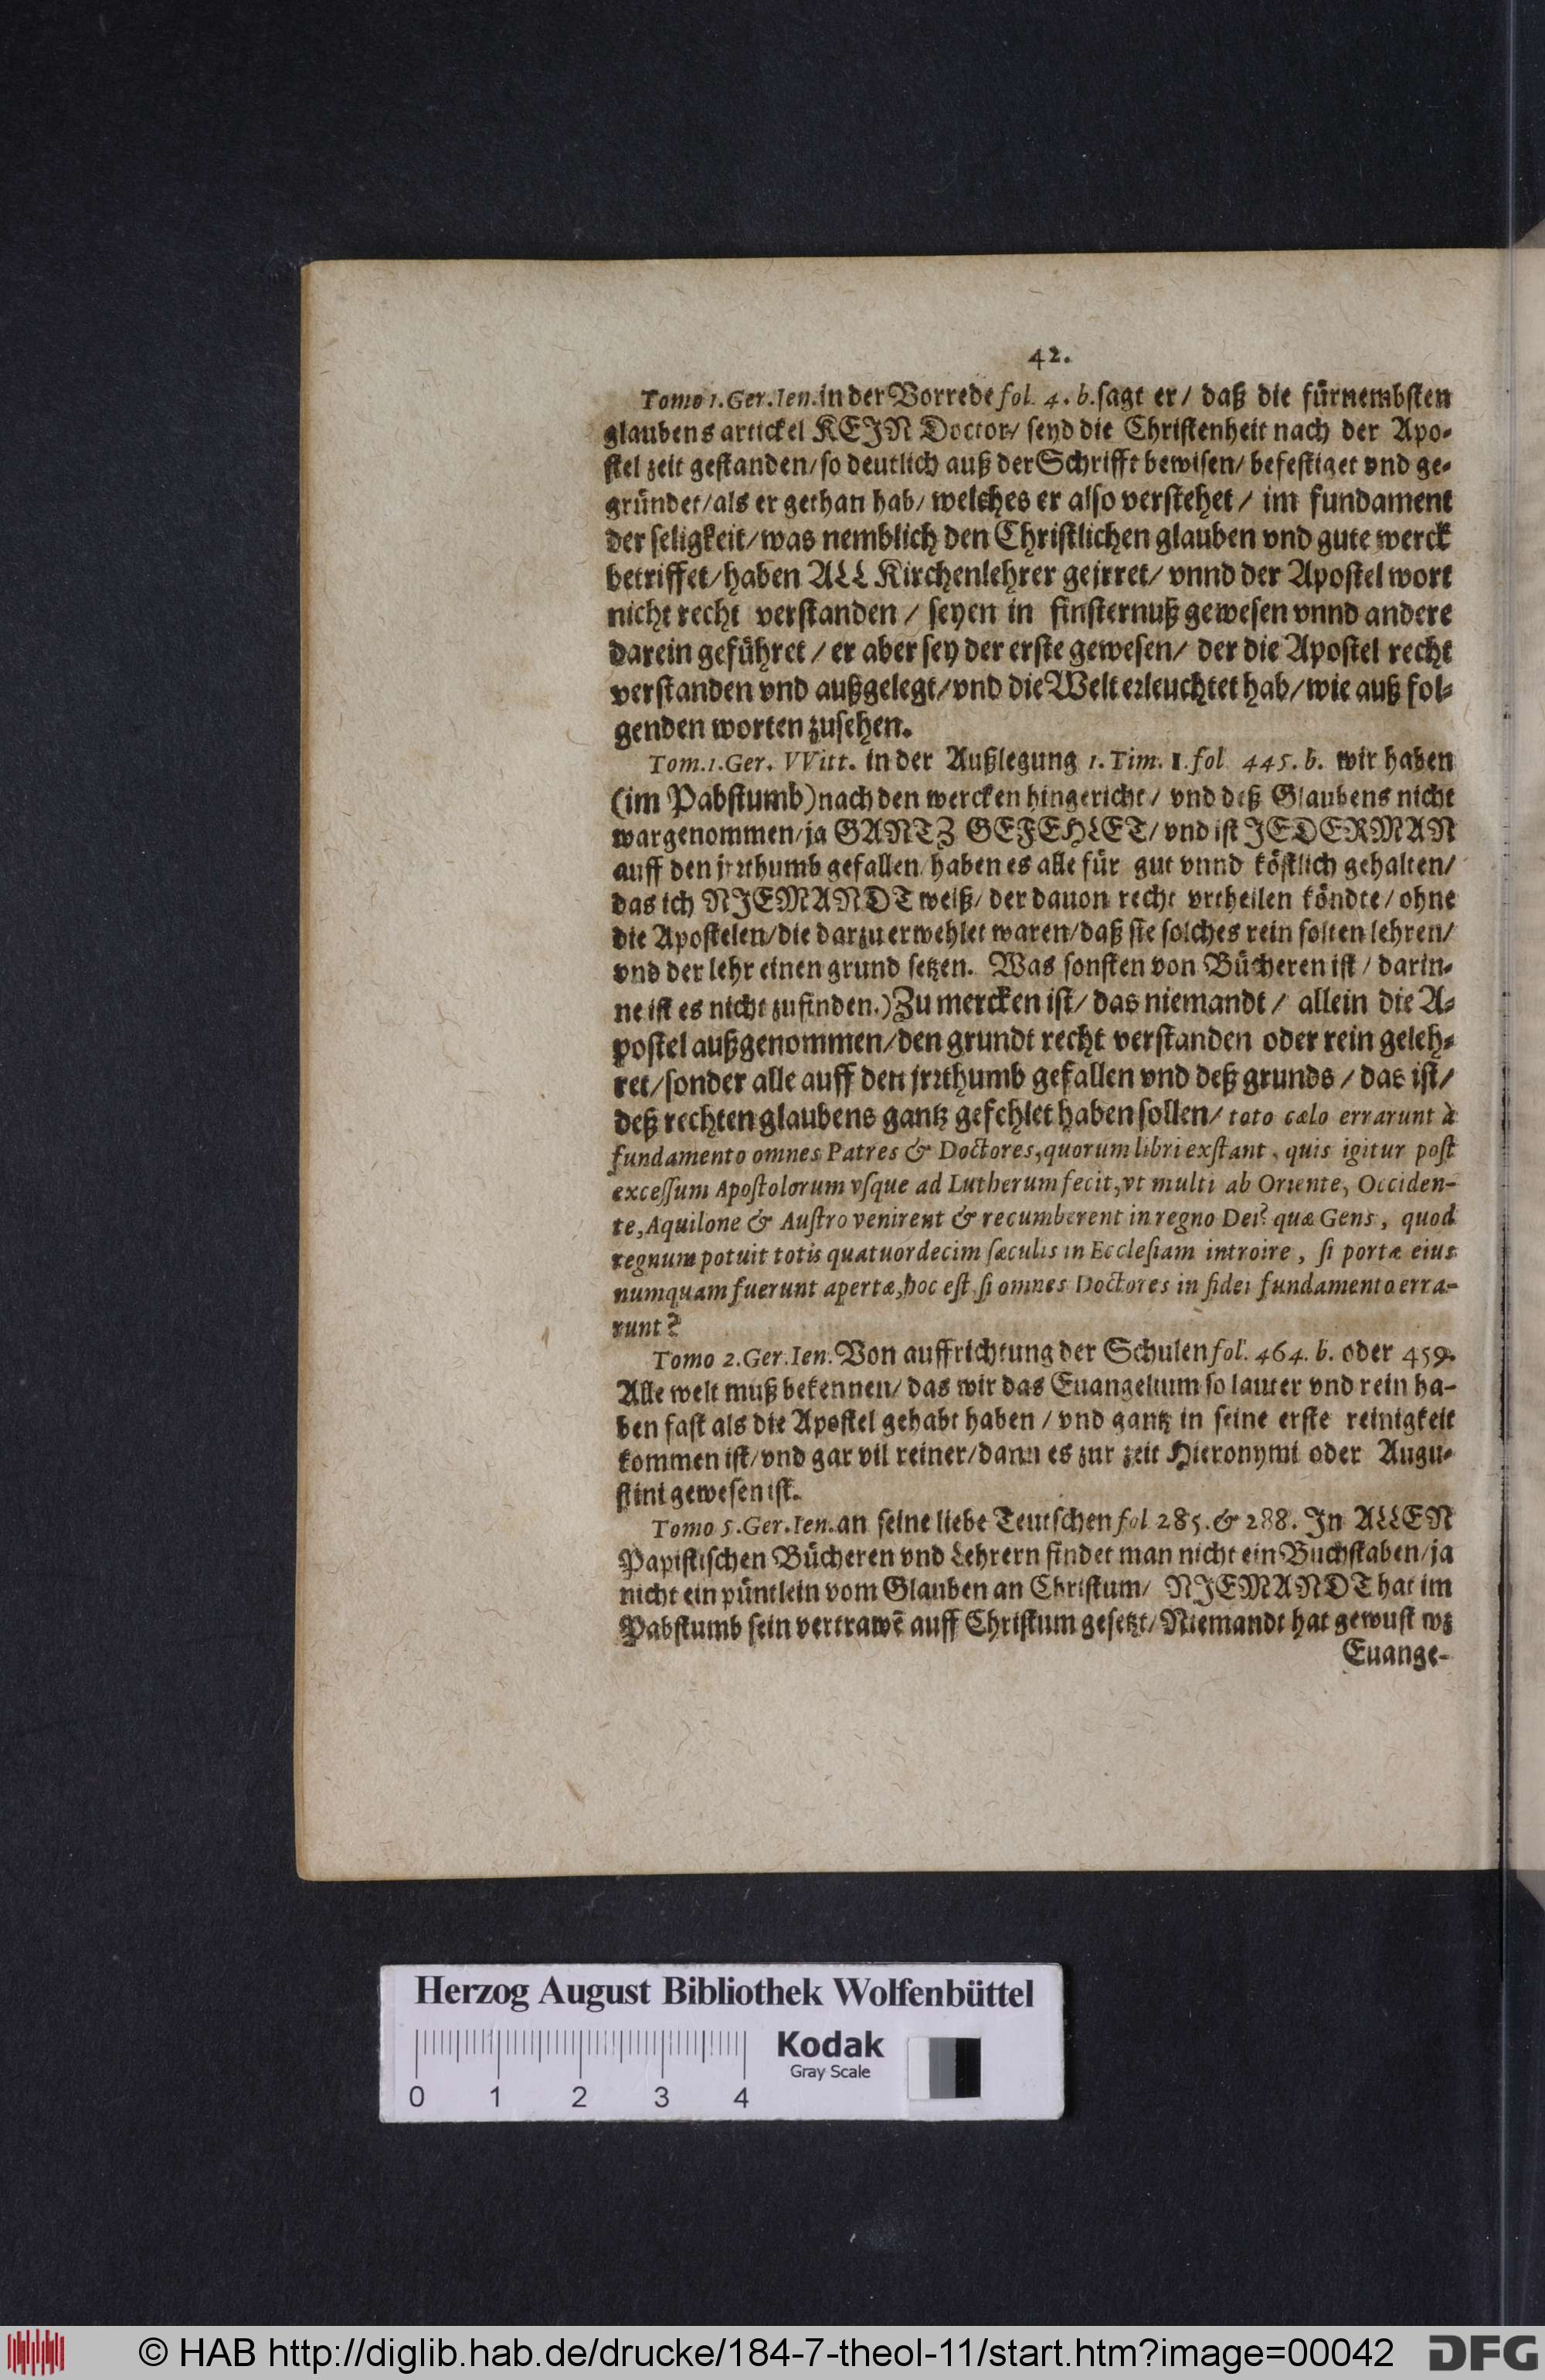 42.
Tomo 1. Ger. Ien. in der Vorrede fol. 4. b. sagt er / daß die fürnembsten
glaubens artickel KEJN Doctor / seyd die Christenheit nach der Apo-
stel zeit gestanden / so deutlich auß der Schrifft bewisen / befestiget vnd ge-
gründet / als er gethan hab / welches er also verstehet / im fundament
der seligkeit / was nemblich den Christlichen glauben vnd gute werck
betriffet / haben ALL Kirchenlehrer gejrret / vnnd der Apostel wort
nicht recht verstanden / seyen in finsternuß gewesen vnnd andere
darein geführet / er aber sey der erste gewesen / der die Apostel recht
verstanden vnd außgelegt / vnd die Welt erleuchtet hab / wie auß fol-
genden worten zusehen.
Tom. 1. Ger. VVitt. in der Außlegung 1. Tim. 1. fol 445. b. wir haben
(im Pabstumb) nach den wercken hingericht / vnd deß Glaubens nicht
wargenommen / ja GANTZ GEFEHLET / vnd ist JEDERMAN
auff den jrrthumb gefallen / haben es alle für gut vnnd köstlich gehalten /
das ich NJEMANDT weiß / der dauon recht vrtheilen köndte / ohne
die Apostelen / die darzu erwehlet waren / daß sie solches rein solten lehren /
vnd der lehr einen grund setzen. Was sonsten von Bücheren ist / darin-
ne ist es nicht zufinden.) Zu mercken ist / das niemandt / allein die A-
postel außgenommen / den grundt recht verstanden oder rein geleh-
ret / sonder alle auff den jrrthumb gefallen vnd deß grunds / das ist /
deß rechten glaubens gantz gefehlet haben sollen / toto cælo errarunt à
fundamento omnes Patres & Doctores, quorum libri exstant, quis igitur post
excessum Apostolorum vsque ad Lutherum fecit, vt multi ab Oriente, Occiden-
te, Aquilone & Austro venirent & recumberent in regno Dei? quæ Gens, quod
regnum potuit totis quatuordecim sæculis in Ecclesiam introire, si portæ eius
numquam fuerunt apertæ, hoc est, si omnes Doctores in fidei fundamento erra-
runt?
Tomo 2. Ger. Ien. Von auffrichtung der Schulen fol. 464. b. oder 459.
Alle welt muß bekennen / das wir das Euangelium so lauter vnd rein ha-
ben fast als die Apostel gehabt haben / vnd gantz in seine erste reinigkeit
kommen ist / vnd gar vil reiner / dann es zur zeit Hieronymi oder Augu-
stini gewesen ist.
Tomo 5. Ger. Ien. an seine liebe Teutschen fol 285. & 288. Jn ALLEN
Papistischen Bücheren vnd Lehrern findet man nicht ein Buchstaben / ja
nicht ein püntlein vom Glauben an Christum / NJEMANDT hat im
Pabstumb sein vertrawẽ auff Christum gesetzt / Niemandt hat gewust wz
Euange-
Herzog August Bibliothek Wolfenbüttel
Kodak
Gray Scale
0 1 2 3 4
© HAB http://diglib.hab.de/drucke/184-7-theol-11/start.htm?image=00042
DFG